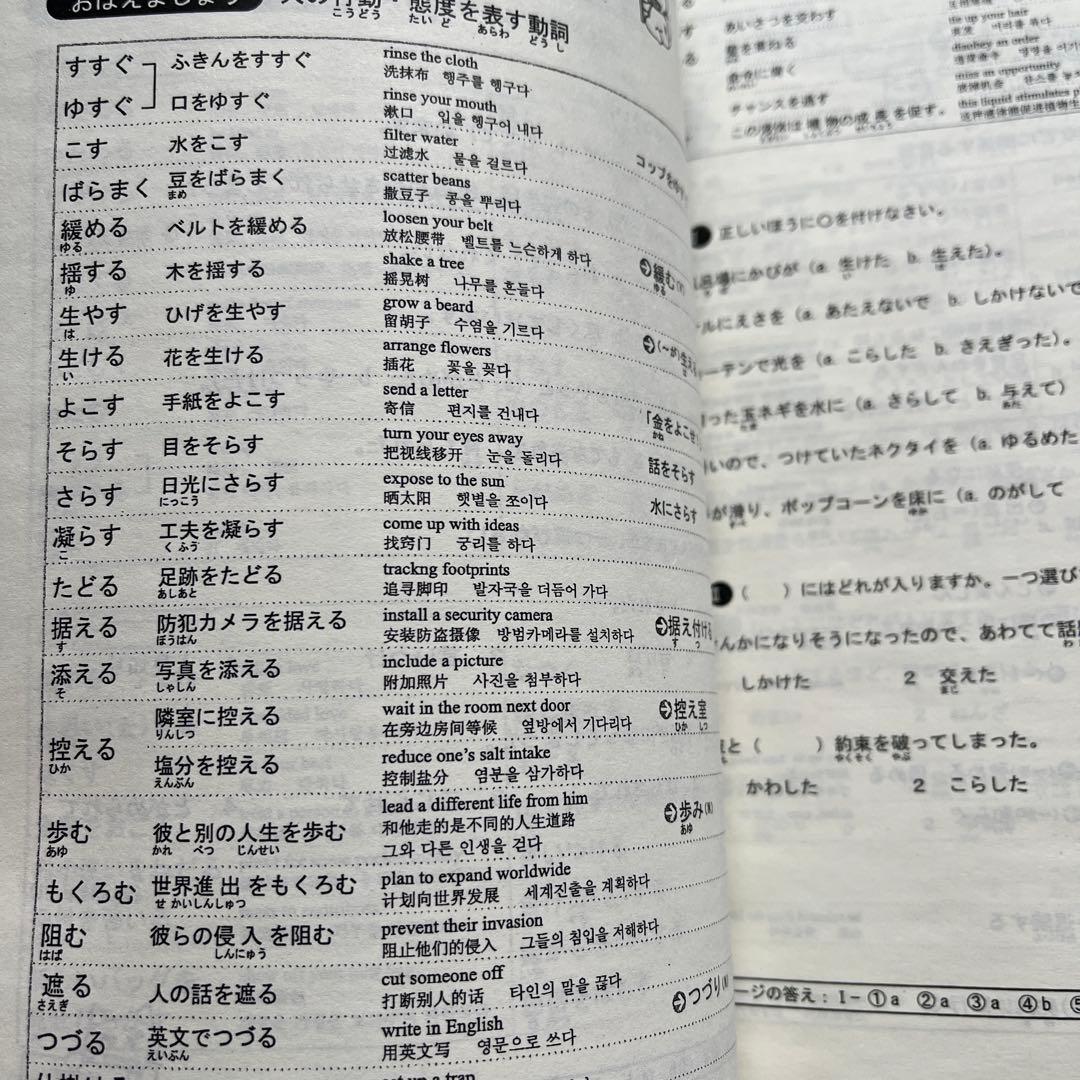 おぼえましょう
態度を表す動詞
こうどう たいど あらわ どうし
すすぐ ふきんをすすぐ rinse the cloth
洗抹布 행주를 헹구다
ゆすぐ 口をゆすぐ rinse your mouth
漱口 입을 헹구어 내다
こす 水をこす filter water
过滤水 물을 걸르다
ばらまく 豆をばらまく scatter beans
まめ 撒豆子 콩을 뿌리다
緩める ベルトを緩める loosen your belt
ゆる 放松腰带 벨트를 느슨하게 하다 緩む(V)
ゆる
揺する 木を揺する shake a tree
ゆ 摇晃树 나무를 흔들다
生やす ひげを生やす grow a beard
は 留胡子 수염을 기르다
生ける 花を生ける arrange flowers
い 插花 꽃을 꽂다
よこす 手紙をよこす send a letter
寄信 편지를 건내다 「金をよこせ
かね
そらす 目をそらす turn your eyes away
把视线移开 눈을 돌리다 話をそらす
さらす 日光にさらす expose to the sun
にっこう 晒太阳 햇볕을 쪼이다 水にさらす
凝らす 工夫を凝らす come up with ideas
こ くふう 找窍门 궁리를 하다
たどる 足跡をたどる trackng footprints
あしあと 追寻脚印 발자국을 더듬어 가다
据える 防犯カメラを据える install a security camera
す ぼうはん 安装防盗摄像 방범카메라를 설치하다 据え付ける
す つ
添える 写真を添える include a picture
そ しゃしん 附加照片 사진을 첨부하다
控える 隣室に控える wait in the room next door
ひか りんしつ 在旁边房间等候 옆방에서 기다리다 控え室
ひか しつ
塩分を控える reduce one's salt intake
えんぶん 控制盐分 염분을 삼가하다
歩む 彼と別の人生を歩む lead a different life from him
あゆ かれ べつ じんせい 和他走的是不同的人生道路 歩み(N)
あゆ
그와 다른 인생을 걷다
もくろむ 世界進出をもくろむ plan to expand worldwide
せかいしんしゅつ 计划向世界发展 세계진출을 계획하다
阻む 彼らの侵入を阻む prevent their invasion
はば しんにゅう 阻止他们的侵入 그들의 침입을 저해하다
遮る 人の話を遮る cut someone off
さえぎ 打断别人的话 타인의 말을 끊다
つづる 英文でつづる write in English つづり(N)
えいぶん 用英文写 영문으로 쓰다
set up a trap
あいさつを交わす
tie up your hair
disobey an order
miss an opportunity
チャンスを逃す
この液体は植物の成長を促す。
this liquid stimulates
正しいほうに○を付けなさい。
にかびが (a. 生けた b. 生えた)。
ルにえさを (a. あたえないで b. しかけないで
ーテンで光を (a. こらした b. さえぎった)。
った玉ネギを水に (a. さらして b. 与えて)
いので、つけていたネクタイを (a. ゆるめた
が滑り、ポップコーンを床に (a. のがして
( )にはどれが入りますか。一つ選び
んかになりそうになったので、あわてて話
しかけた 2 交えた
まじ
と ( ) 約束を破ってしまった。
やくそく やぶ
かわした 2 こらした
ージの答え:I-①a ②a ③a ④b ⑤